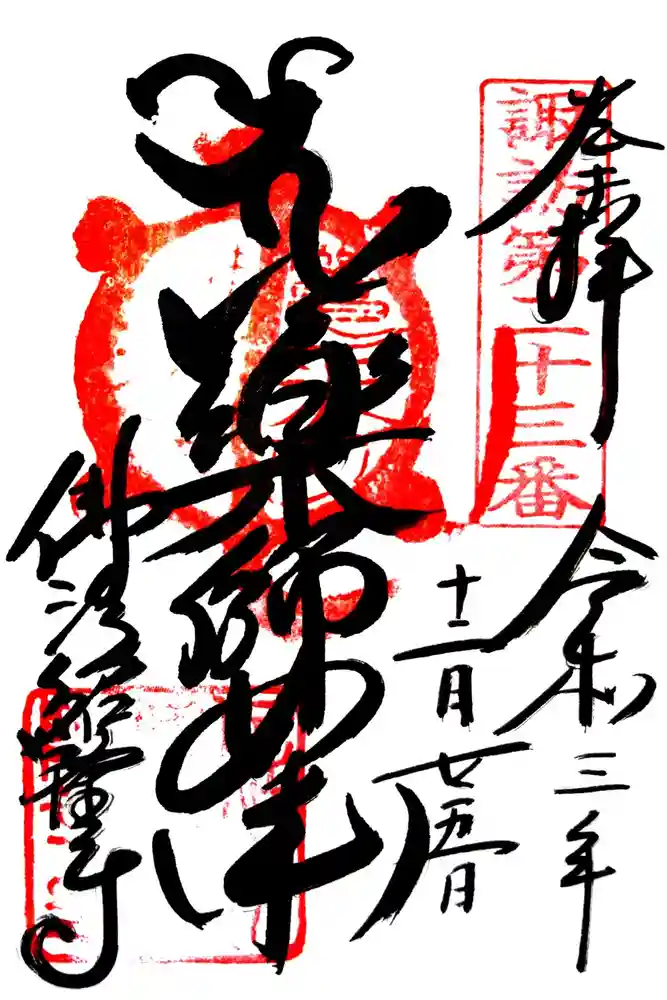 奉拝
諏訪第二十三番
令和三年
十二月廿五日
薬師如来
佛法紹隆寺